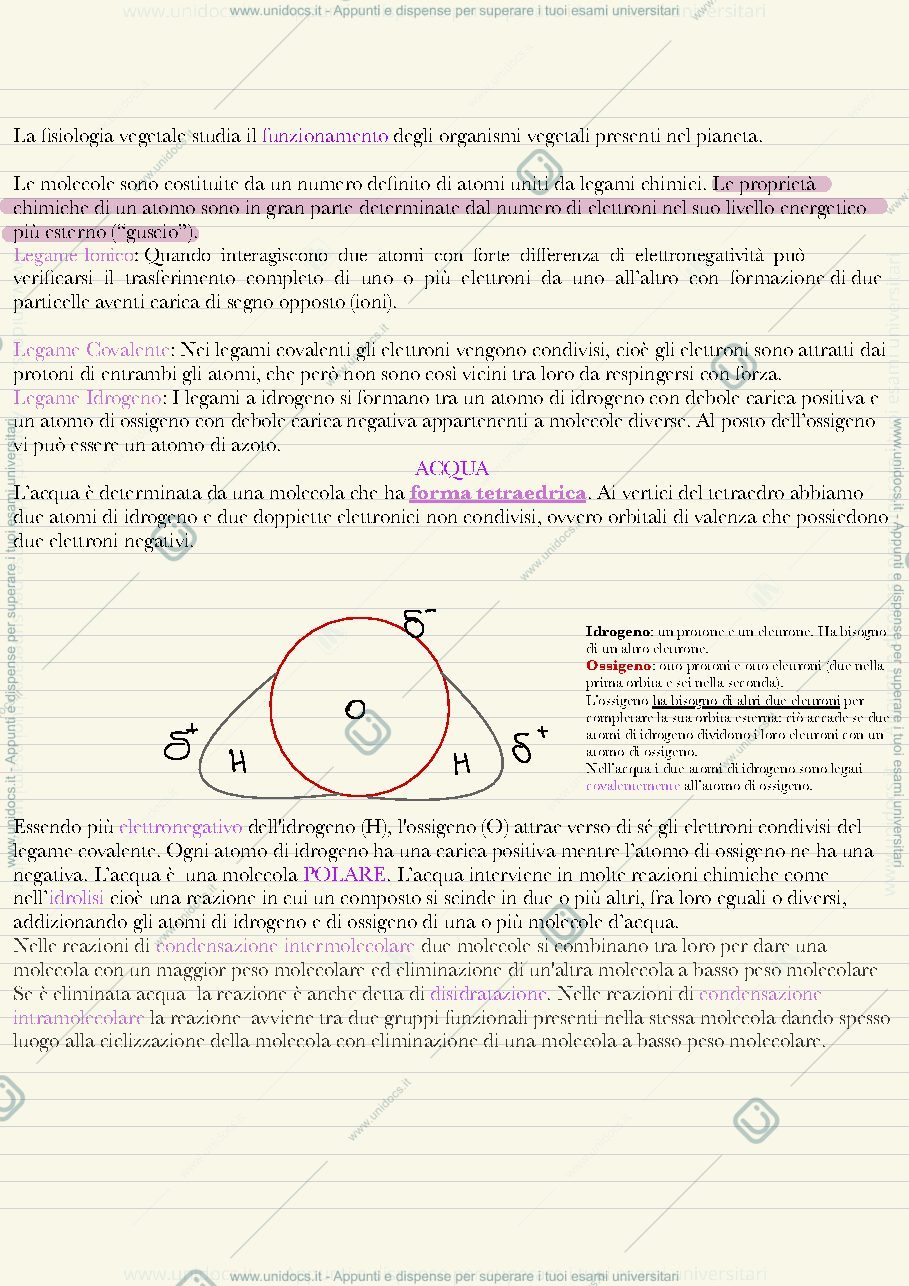 www.unidocs.it - Appunti e dispense per superare i tuoi esami universitari
La fisiologia vegetale studia il funzionamento degli organismi vegetali presenti nel pianeta.
Le molecole sono costituite da un numero definito di atomi uniti da legami chimici. Le proprietà
chimiche di un atomo sono in gran parte determinate dal numero di elettroni nel suo livello energetico
più esterno (“guscio”).
Legame Ionico: Quando interagiscono due atomi con forte differenza di elettronegatività può
verificarsi il trasferimento completo di uno o più elettroni da uno all’altro con formazione di due
particelle aventi carica di segno opposto (ioni).
Legame Covalente: Nei legami covalenti gli elettroni vengono condivisi, cioè gli elettroni sono attratti dai
protoni di entrambi gli atomi, che però non sono così vicini tra loro da respingersi con forza.
Legame Idrogeno: I legami a idrogeno si formano tra un atomo di idrogeno con debole carica positiva e
un atomo di ossigeno con debole carica negativa appartenenti a molecole diverse. Al posto dell’ossigeno
vi può essere un atomo di azoto.
ACQUA
L’acqua è determinata da una molecola che ha forma tetraedrica. Ai vertici del tetraedro abbiamo
due atomi di idrogeno e due doppiette elettronici non condivisi, ovvero orbitali di valenza che possiedono
due elettroni negativi.
δ-
O
δ+
H
H
δ+
Idrogeno: un protone e un elettrone. Ha bisogno
di un altro elettrone.
Ossigeno: otto protoni e otto elettroni (due nella
prima orbita e sei nella seconda).
L’ossigeno ha bisogno di altri due elettroni per
completare la sua orbita esterna: ciò accade se due
atomi di idrogeno dividono i loro elettroni con un
atomo di ossigeno.
Nell’acqua i due atomi di idrogeno sono legati
covalentemente all’atomo di ossigeno.
Essendo più elettronegativo dell'idrogeno (H), l'ossigeno (O) attrae verso di sé gli elettroni condivisi del
legame covalente. Ogni atomo di idrogeno ha una carica positiva mentre l’atomo di ossigeno ne ha una
negativa. L’acqua è una molecola POLARE. L’acqua interviene in molte reazioni chimiche come
nell’idrolisi cioè una reazione in cui un composto si scinde in due o più altri, fra loro eguali o diversi,
addizionando gli atomi di idrogeno e di ossigeno di una o più molecole d’acqua.
Nelle reazioni di condensazione intermolecolare due molecole si combinano tra loro per dare una
molecola con un maggior peso molecolare ed eliminazione di un'altra molecola a basso peso molecolare
Se è eliminata acqua la reazione è anche detta di disidratazione. Nelle reazioni di condensazione
intramolecolare la reazione avviene tra due gruppi funzionali presenti nella stessa molecola dando spesso
luogo alla ciclizzazione della molecola con eliminazione di una molecola a basso peso molecolare.
www.unidocs.it - Appunti e dispense per superare i tuoi esami universitari